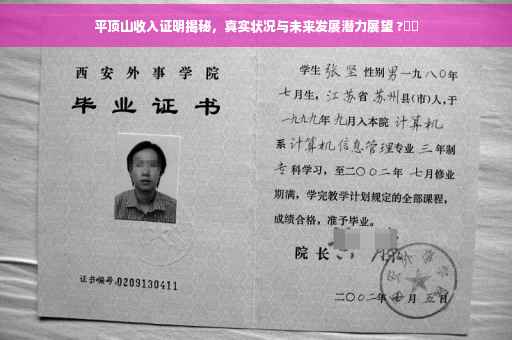 平顶山收入证明揭秘，真实状况与未来发展潜力展望 ?
西安外事学院
毕业证书
证书编号:0209130411
学生 张坚 性别 男 一九八〇年
七月生，江苏省 苏州县(市)人，于
一九九九年 九月入本院 计算机
系 计算机信息管理专业 三 年制
专科学习，至二〇〇二年 七月修业
期满，学完教学计划规定的全部课程，
成绩合格，准予毕业。
院长
二〇〇二年 七月 五日